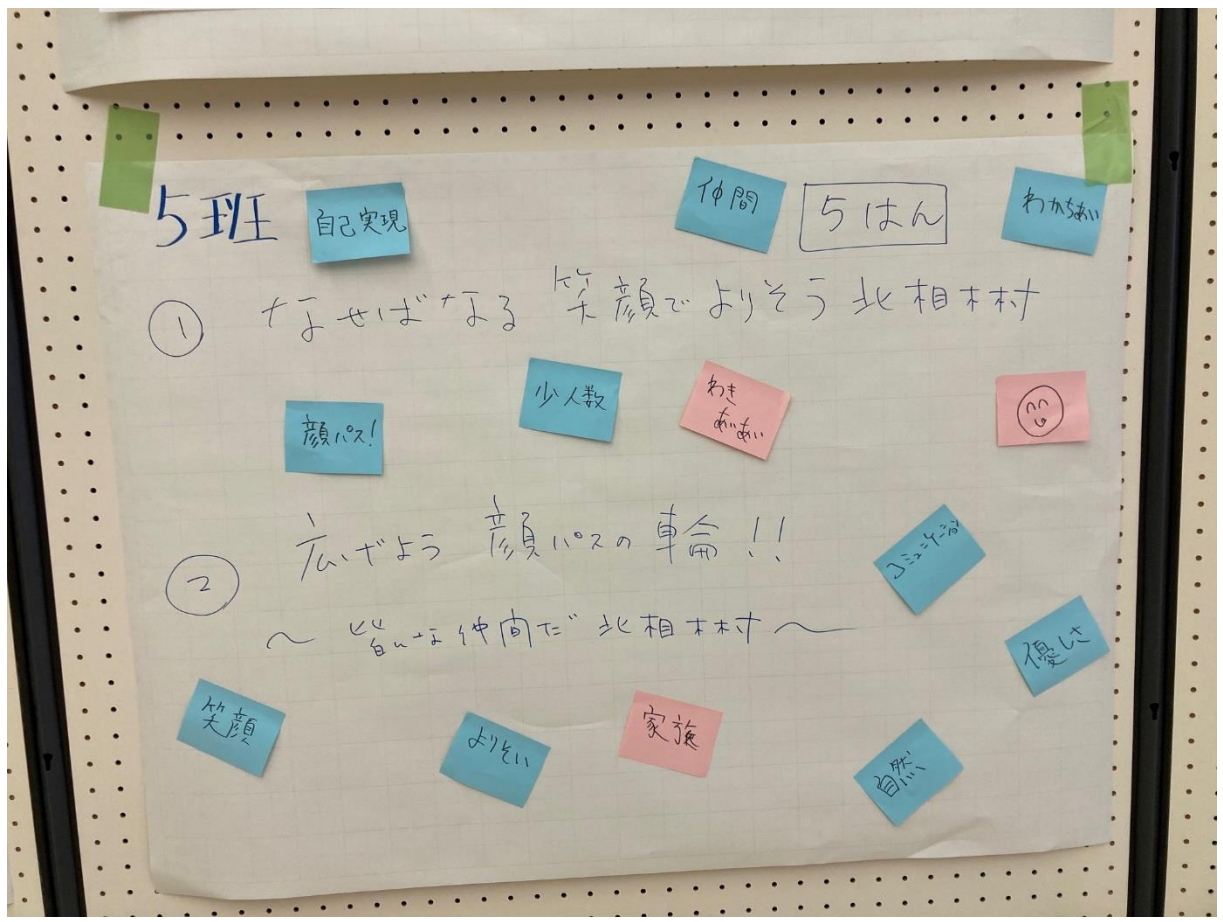 5班
自己実現
仲間
5はん
わかちあい
① なせばなる 笑顔でよりそう 北相木村
顔パス!
少人数
わき
あいあい
② 広げよう 顔パスの輪!!
～ 皆んな仲間だ 北相木村 ～
コミュニケーション
優しさ
笑顔
よりそい
家族
自然